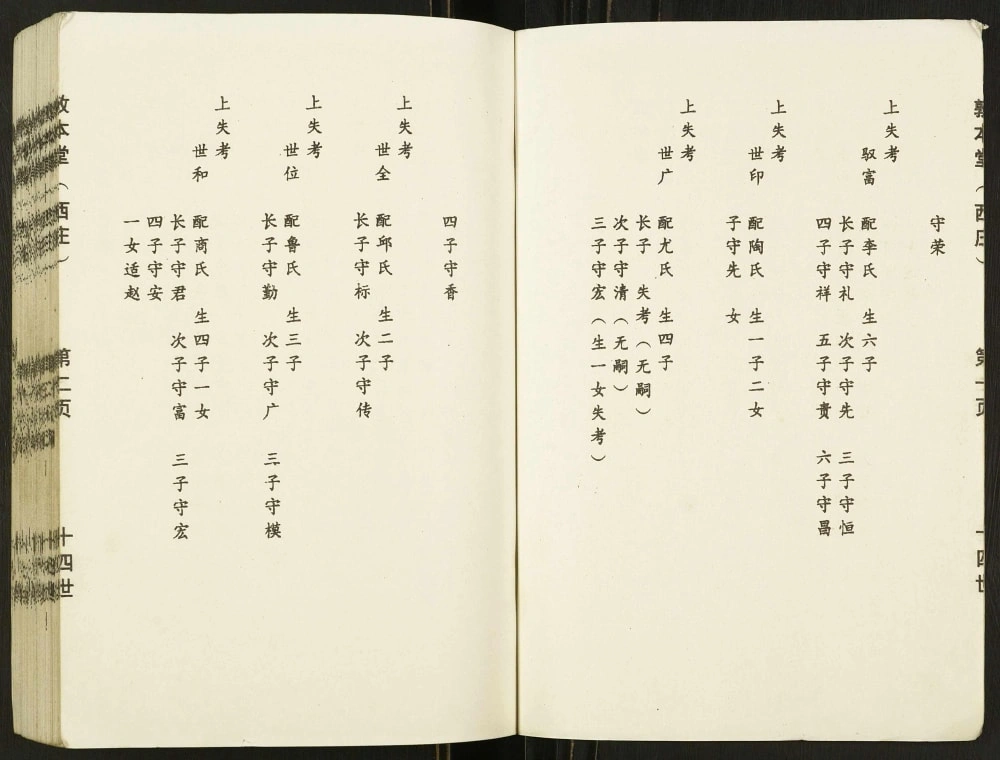 敦本堂（西庄） 第一页 十四世
守荣
上失考
驭富
配李氏 生六子
长子守礼 次子守先 三子守恒
四子守祥 五子守贵 六子守昌
上失考
世印
配陶氏 生一子二女
子守先 女
上失考
世广
配尤氏 生四子
长子 失考（无嗣）
次子守清（无嗣）
三子守宏（生一女失考）
四子守香
上失考
世全
配邱氏 生二子
长子守标 次子守传
上失考
世位
配鲁氏 生三子
长子守勤 次子守广 三子守模
上失考
世和
配商氏 生四子一女
长子守君 次子守富 三子守宏
四子守安
一女适赵
敦本堂（西庄） 第二页 十四世